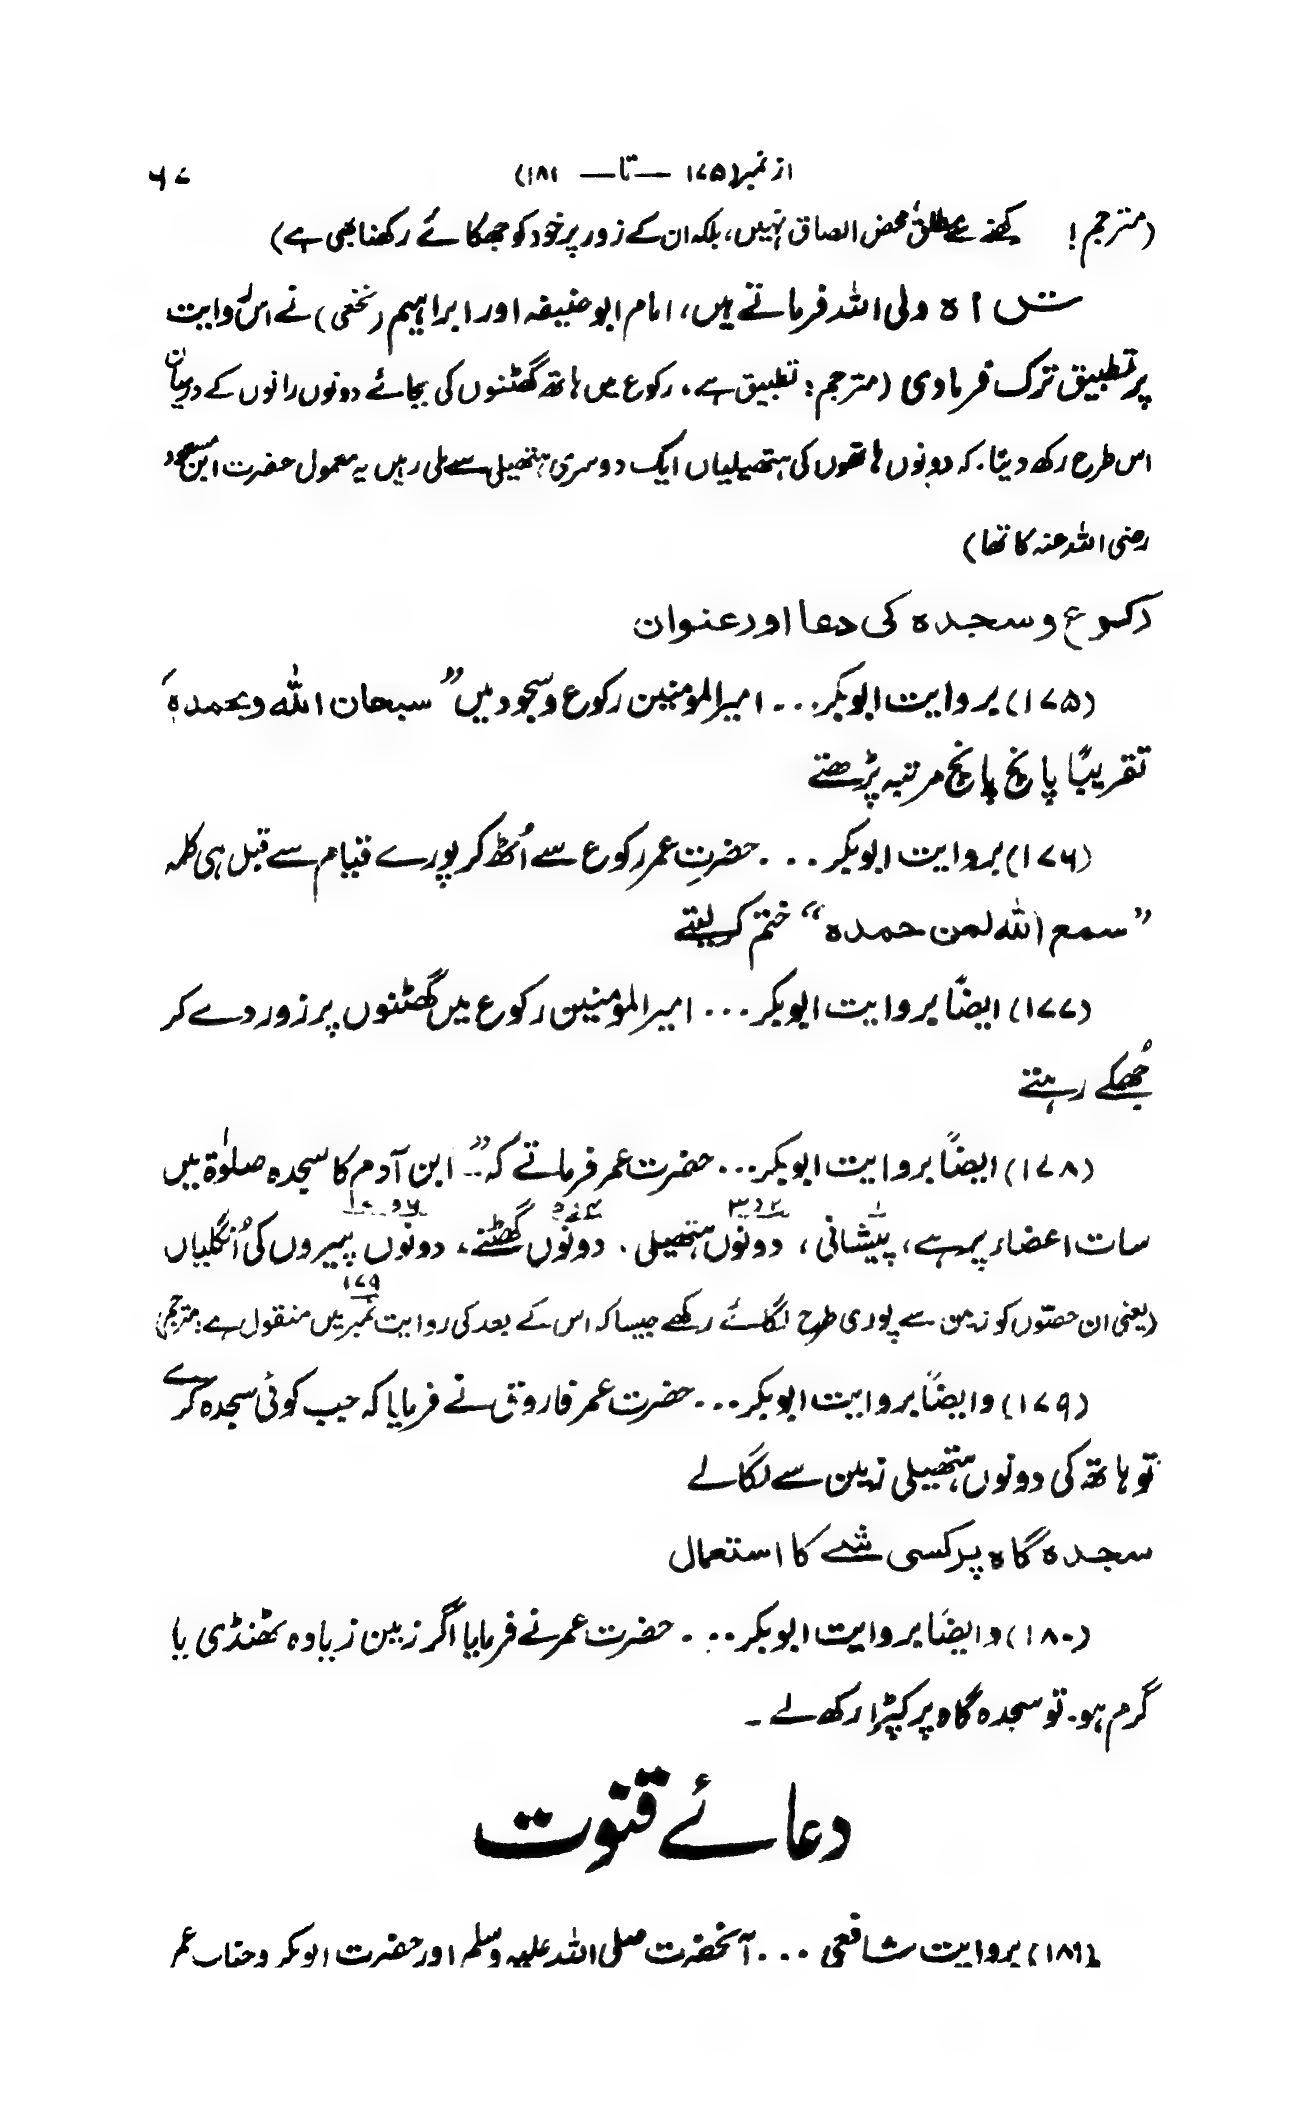 از نمبر (۱۷۵ — تا — ۱۸۱) ۶۷
(مترجم! محض الصاق نہیں، بلکہ ان کے زور پر خود کو جھکائے رکھنا بھی ہے)
شاہ ولی اللہ فرماتے ہیں، امام ابو حنیفہ اور ابراہیم (نخعی) نے اس روایت
پر تطبیق ترک فرما دی (مترجم: تطبیق ہے۔ رکوع میں ہاتھ گھٹنوں کی بجائے دونوں رانوں کے درمیان
اس طرح رکھ دینا۔ کہ دونوں ہاتھوں کی ہتھیلیاں ایک دوسری ہتھیلی سے ملی رہیں یہ معمول حضرت ابن مسعود
رضی اللہ عنہ کا تھا)
رکوع و سجدہ کی دعا اور عنوان
(۱۷۵) بروایت ابوبکر... امیر المؤمنین رکوع و سجود میں ”سبحان اللہ وبحمدہ“
تقریبًا پانچ پانچ مرتبہ پڑھتے
(۱۷۶) بروایت ابوبکر... حضرتِ عمر رکوع سے اُٹھ کر پورے قیام سے قبل ہی کلمہ
”سمع اللہ لمن حمدہ“ ختم کر لیتے
(۱۷۷) ایضًا بروایت ابوبکر... امیر المؤمنین رکوع میں گھٹنوں پر زور دے کر
جُھکے رہتے
(۱۷۸) ایضاً بروایت ابوبکر... حضرت عمر فرماتے کہ ”ابن آدم کا سجدہ صلوٰۃ میں
سات اعضاء پر ہے، پیشانی ۱، دونوں ہتھیلی ۲ و ۳۔ دونوں گھٹنے ۴ و ۵، دونوں پیروں کی اُنگلیاں ۶ و ۷
(یعنی ان حصّوں کو زمین سے پوری طرح لگائے رکھے جیسا کہ اس کے بعد کی روایت نمبر ۱۷۹ میں منقول ہے: مترجم)
(۱۷۹) وایضاً بروایت ابوبکر... حضرت عمر فاروق نے فرمایا کہ جب کوئی سجدہ کرے
تو ہاتھ کی دونوں ہتھیلی زمین سے لگا لے
سجدہ گاہ پر کسی شے کا استعمال
(۱۸۰) وایضًا بروایت ابوبکر... حضرت عمر نے فرمایا اگر زمین زیادہ ٹھنڈی یا
گرم ہو۔ تو سجدہ گاہ پر کپڑا رکھ لے۔
دعائے قنوت
(۱۸۱) بروایت شافعی... آنحضرت صلی اللہ علیہ وسلم اور حضرت ابوبکر و جناب عمر